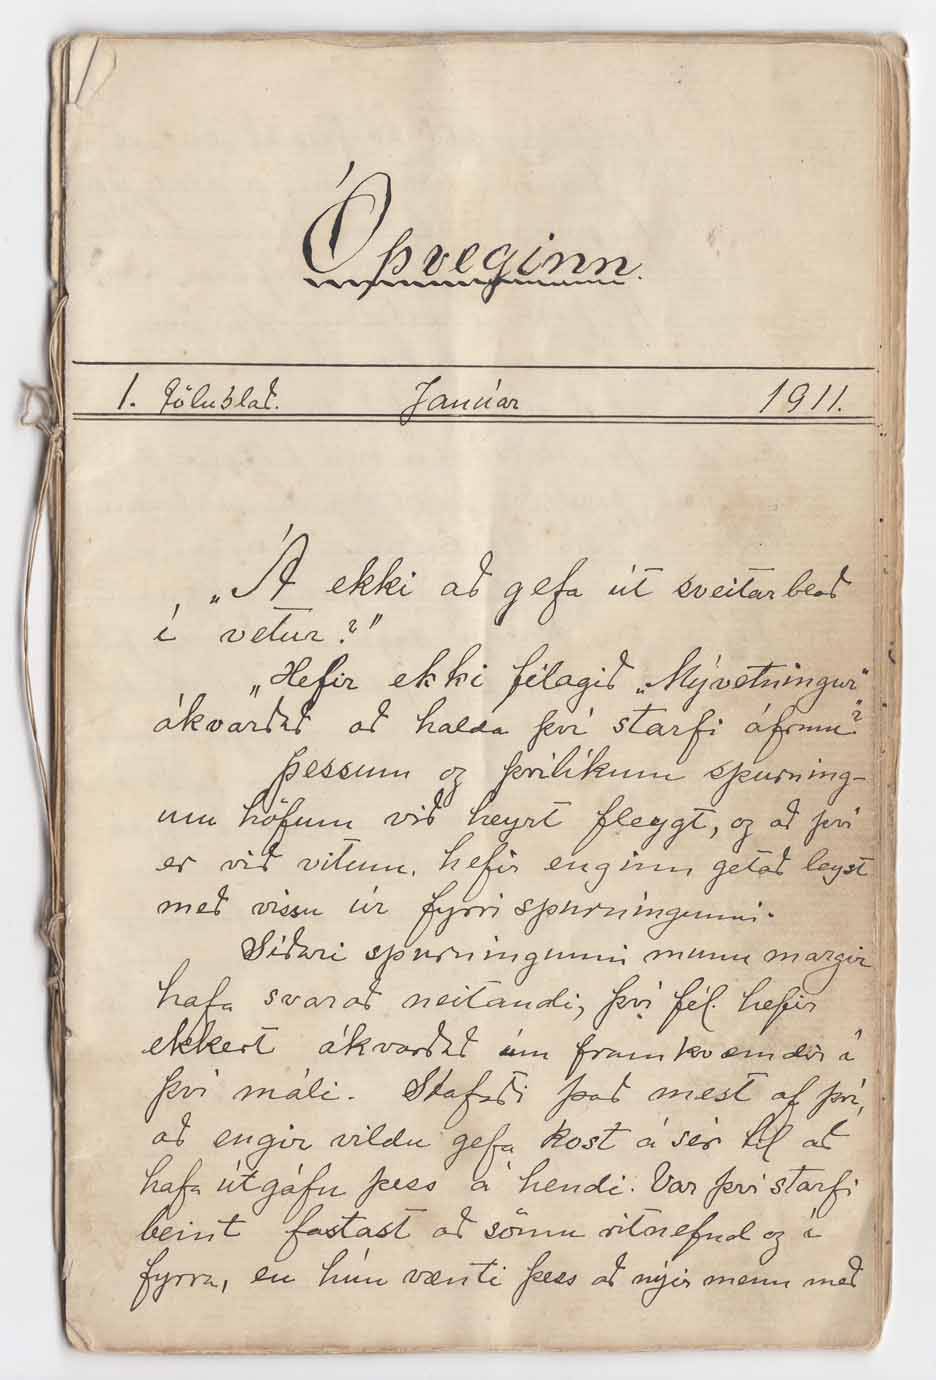 Óþveginn.
1. Tölublað. Janúar 1911.
„Á ekki að gefa út sveitarblað
í vetur?"
„Hefir ekki félagið „Mývetningur"
ákvarðað að halda því starfi áfram?"
Þessum og þvílíkum spurning-
um höfum við heyrt fleygt, og að því
er við vitum, hefir enginn getað leyst
með vissu úr fyrri spurningunni.
Síðari spurningunni munu margir
hafa svarað neitandi, því fél. hefir
ekkert ákvarðað um framkvæmdir á
því máli. Stafaði það mest af því,
að engir vildu gefa kost á sér til að
hafa útgáfu þess á hendi. Var því starfi
beint fastast að sömu ritnefnd og í
fyrra, en hún vænti þess að nýir menn með